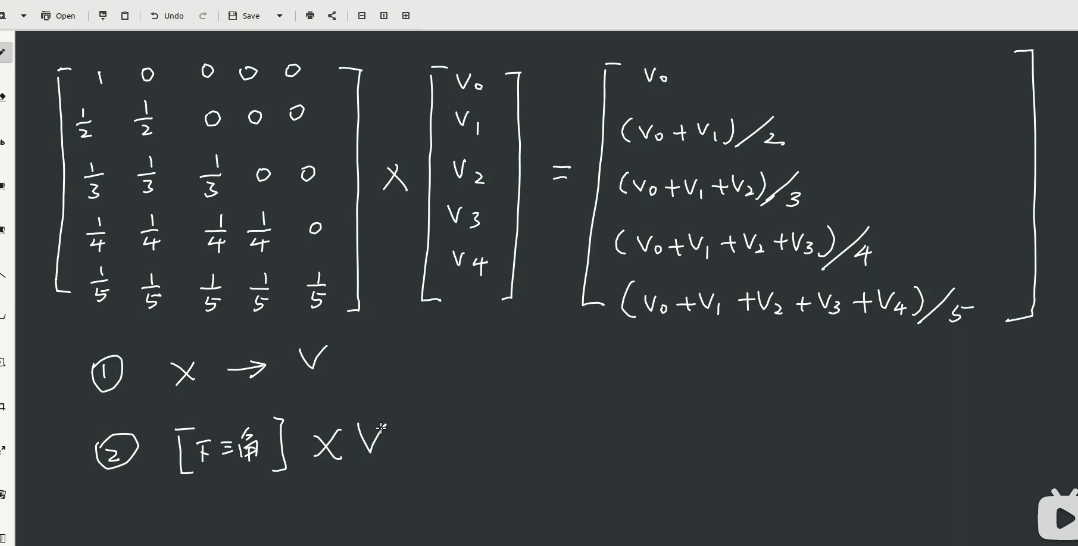 Open Undo Save
1 0 0 0 0
1/2 1/2 0 0 0
1/3 1/3 1/3 0 0
1/4 1/4 1/4 1/4 0
1/5 1/5 1/5 1/5 1/5
×
V₀
V₁
V₂
V₃
V₄
=
V₀
(V₀+V₁)/2
(V₀+V₁+V₂)/3
(V₀+V₁+V₂+V₃)/4
(V₀+V₁+V₂+V₃+V₄)/5
① X → V
② [下三角] × V